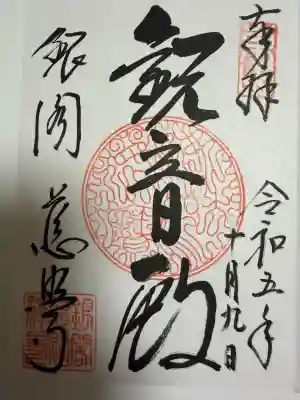 奉拝
令和五年
十月九日
観音殿
銀閣 慈照寺